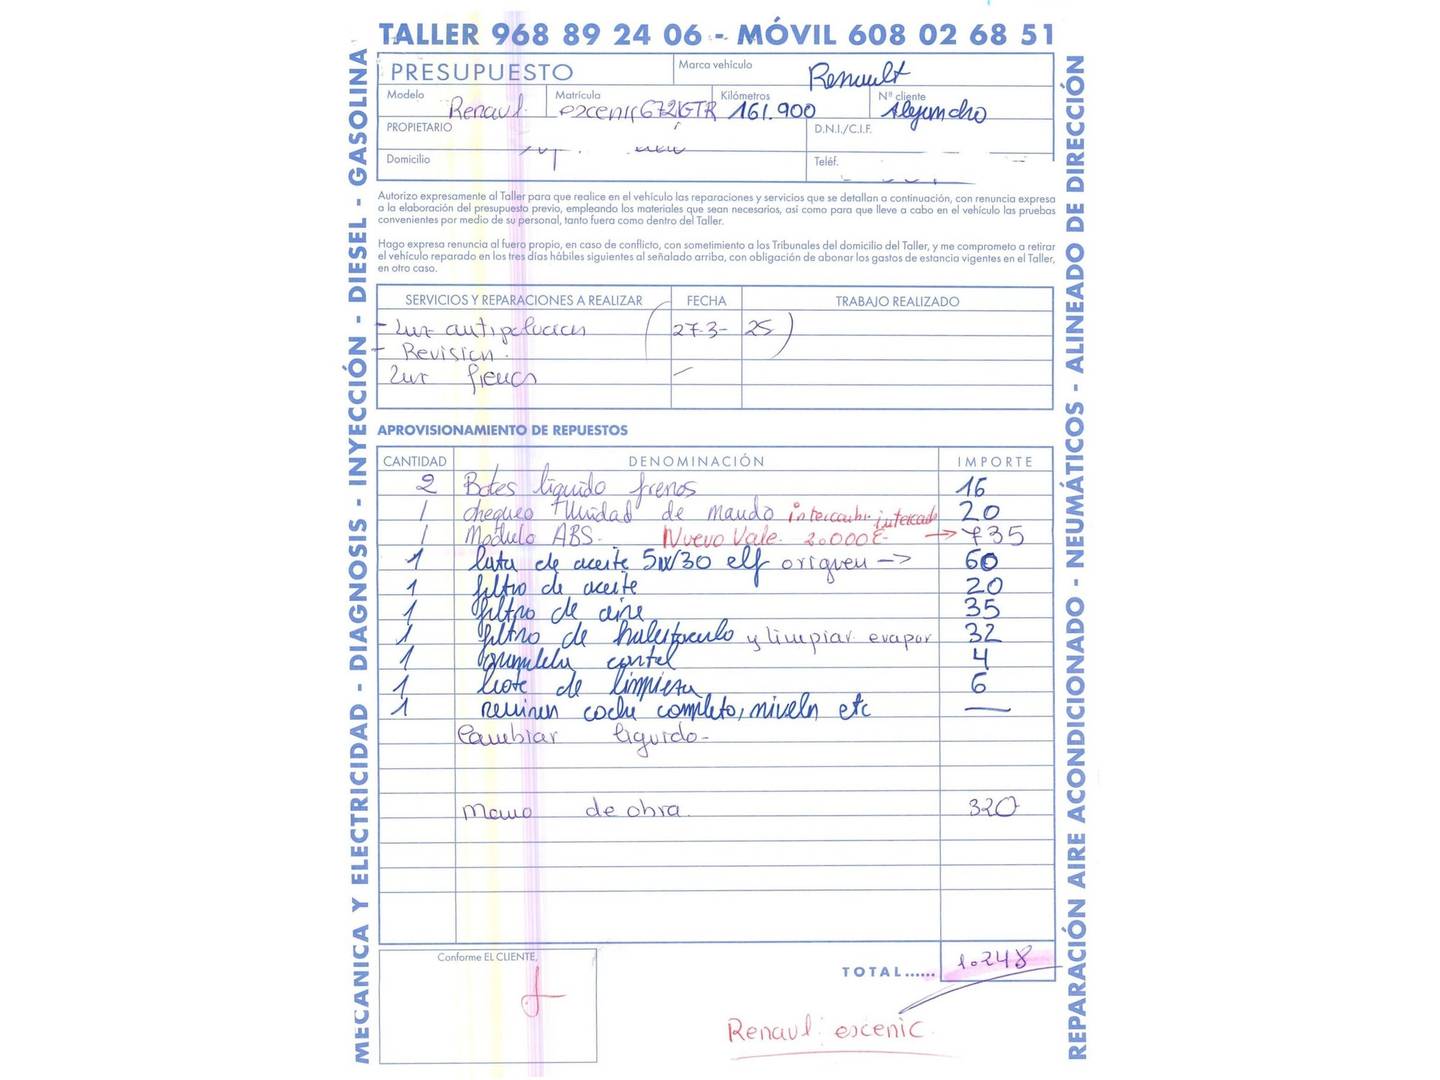 TALLER 968 89 24 06 - MÓVIL 608 02 68 51
PRESUPUESTO
Marca vehículo Renault
Modelo Renaul. Matrícula escenic 6721GTR Kilómetros 161.900 Nº cliente Alejandro
PROPIETARIO D.N.I./C.I.F.
Domicilio Teléf.
Autorizo expresamente al Taller para que realice en el vehículo las reparaciones y servicios que se detallan a continuación, con renuncia expresa
a la elaboración del presupuesto previo, empleando los materiales que sean necesarios, así como para que lleve a cabo en el vehículo las pruebas
convenientes por medio de su personal, tanto fuera como dentro del Taller.
Hago expresa renuncia al fuero propio, en caso de conflicto, con sometimiento a los Tribunales del domicilio del Taller, y me comprometo a retirar
el vehículo reparado en los tres días hábiles siguientes al señalado arriba, con obligación de abonar los gastos de estancia vigentes en el Taller,
en otro caso.
SERVICIOS Y REPARACIONES A REALIZAR FECHA TRABAJO REALIZADO
- Luz antipolucion (27-3- 25)
- Revisión.
Luz frenos -
APROVISIONAMIENTO DE REPUESTOS
CANTIDAD DENOMINACIÓN IMPORTE
2 Botes liquido frenos 16
1 chequeo Unidad de mando 20
1 Modulo ABS. Nuevo Vale. 2.000€ → 735
1 lata de aceite 5W/30 elf origen -> 60
1 filtro de aceite 20
1 filtro de aire 35
1 filtro de habitaculo y limpiar evapor 32
1 arandela cartel 4
1 bote de limpieza 6
1 revision coche completo, niveles etc —
Cambiar liquido-
Mano de obra. 320
Conforme EL CLIENTE,
TOTAL...... 1.248
Renaul. escenic.
MECANICA Y ELECTRICIDAD - DIAGNOSIS - INYECCIÓN - DIESEL - GASOLINA
REPARACIÓN AIRE ACONDICIONADO - NEUMÁTICOS - ALINEADO DE DIRECCIÓN